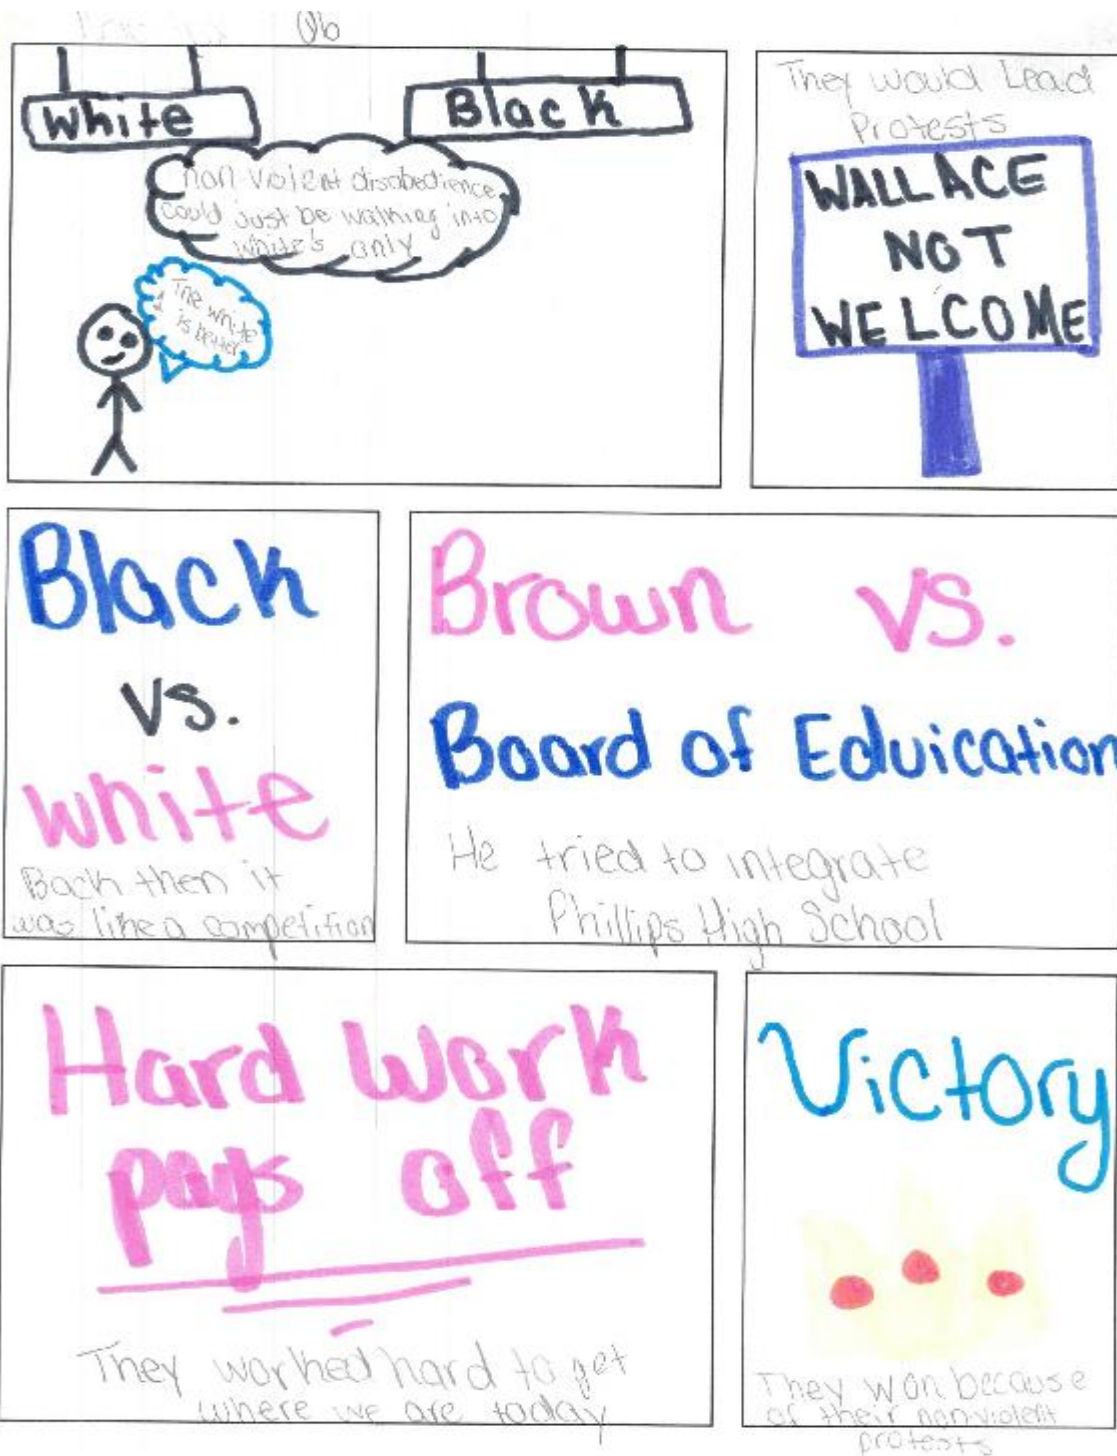 White
Black
non violent disobedience
could just be walking into
white's only
The white
1 is better
They would Lead
Protests
WALLACE
NOT
WELCOME
Black
vs.
white
Back then it
was like a competition
Brown vs.
Board of Eduication
He tried to integrate
Phillips High School
Hard Work
pays off
They worked hard to get
where we are today
Victory
They won because
of their nonviolent
protests